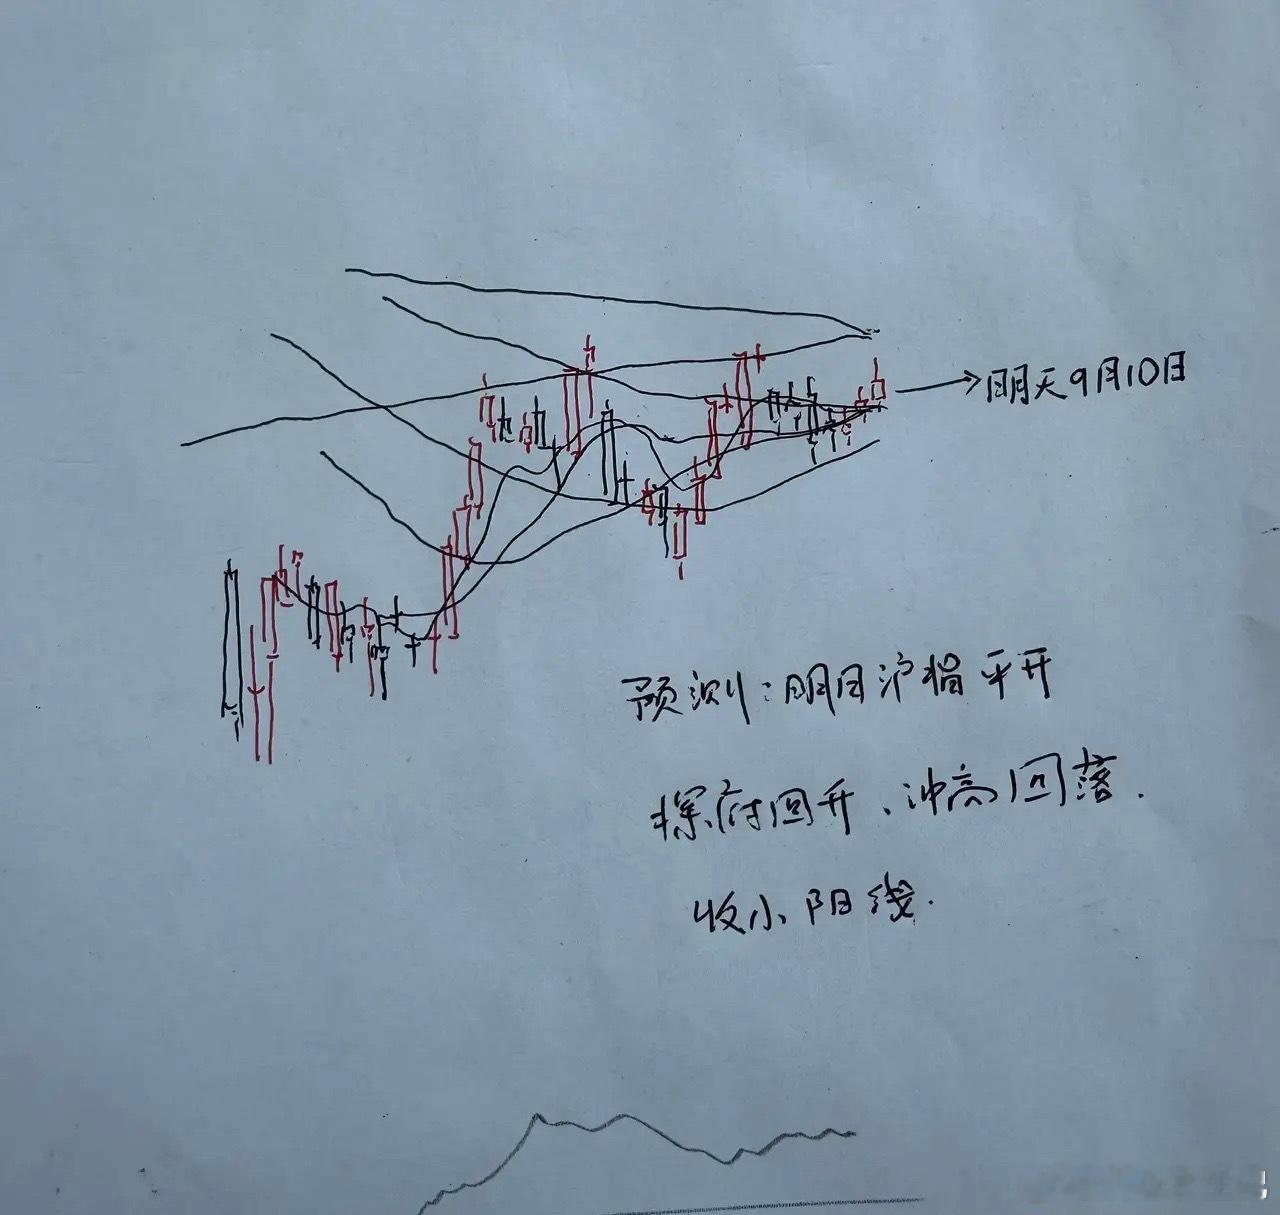 明天9月10日
预测:明日沪指平开
探底回升、冲高回落.
收小阳线.